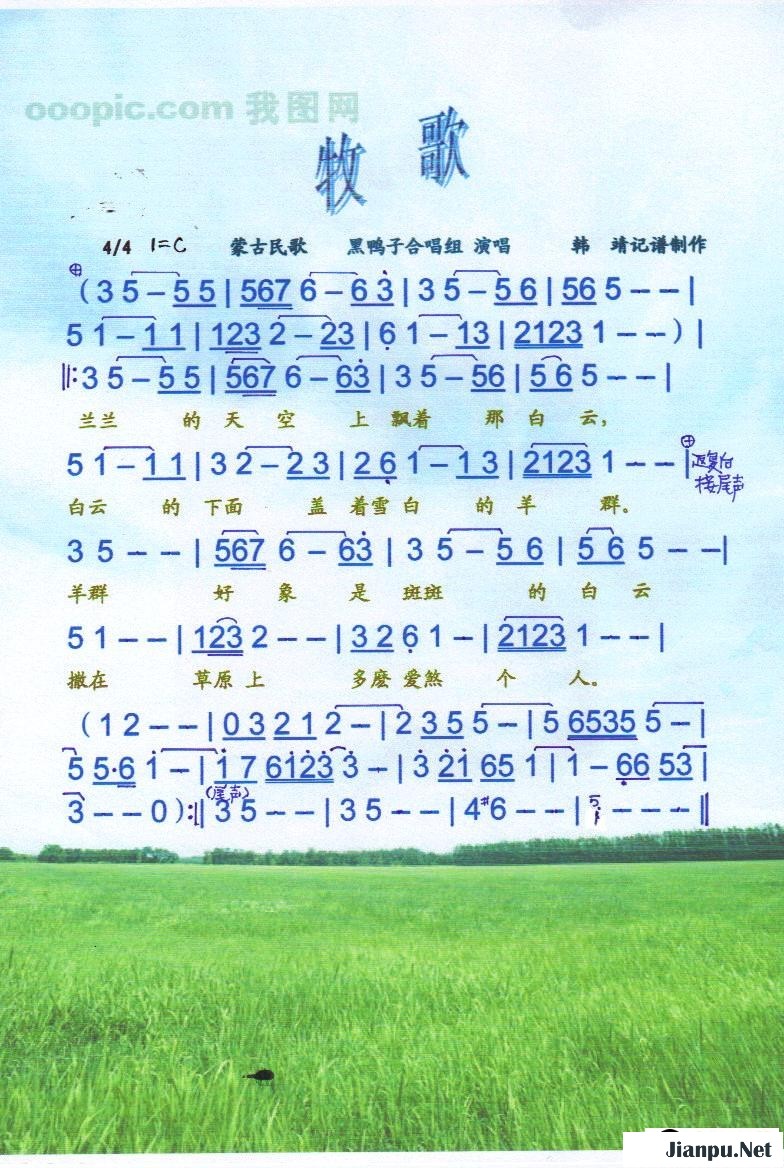 ooopic.com 我图网
牧 歌
4/4 1=C 蒙古民歌 黑鸭子合唱组 演唱 韩 靖记谱制作
(3 5 – 5 5 | 567 6 – 6 3̇ | 3 5 – 5 6 | 56 5 – – |
5 1 – 1 1 | 123 2 – 23 | 6̣ 1 – 13 | 2123 1 – – ) |
‖: 3 5 – 5 5 | 567 6 – 63̇ | 3 5 – 56 | 5 6 5 – – |
兰兰 的 天 空 上 飘着 那 白 云,
5 1 – 1 1 | 3 2 – 2 3 | 2 6̣ 1 – 1 3 | 2123 1 – – | 返复后
接尾声
白云 的 下面 盖 着雪 白 的 羊 群。
3 5 – – | 567 6 – 63̇ | 3 5 – 5 6 | 5 6 5 – – |
羊群 好 象 是 斑斑 的 白 云
5 1 – – | 123 2 – – | 3 2 6̣ 1 – | 2123 1 – – |
撒在 草原 上 多麽 爱煞 个 人。
(1 2 – – | 0 3 2 1 2 – | 2 3 5 5 – | 5 6535 5 – |
5 5·6 1̇ – | 1̇ 7 61̇2̇3̇ 3̇ – | 3̇ 2̇1̇ 65 1 | 1 – 6̣6 53 |
3 – – 0 ) :‖ (尾声) 3 5 – – | 3 5 – – | 4 #6 – – | 5 i – – – ‖
Jianpu.Net